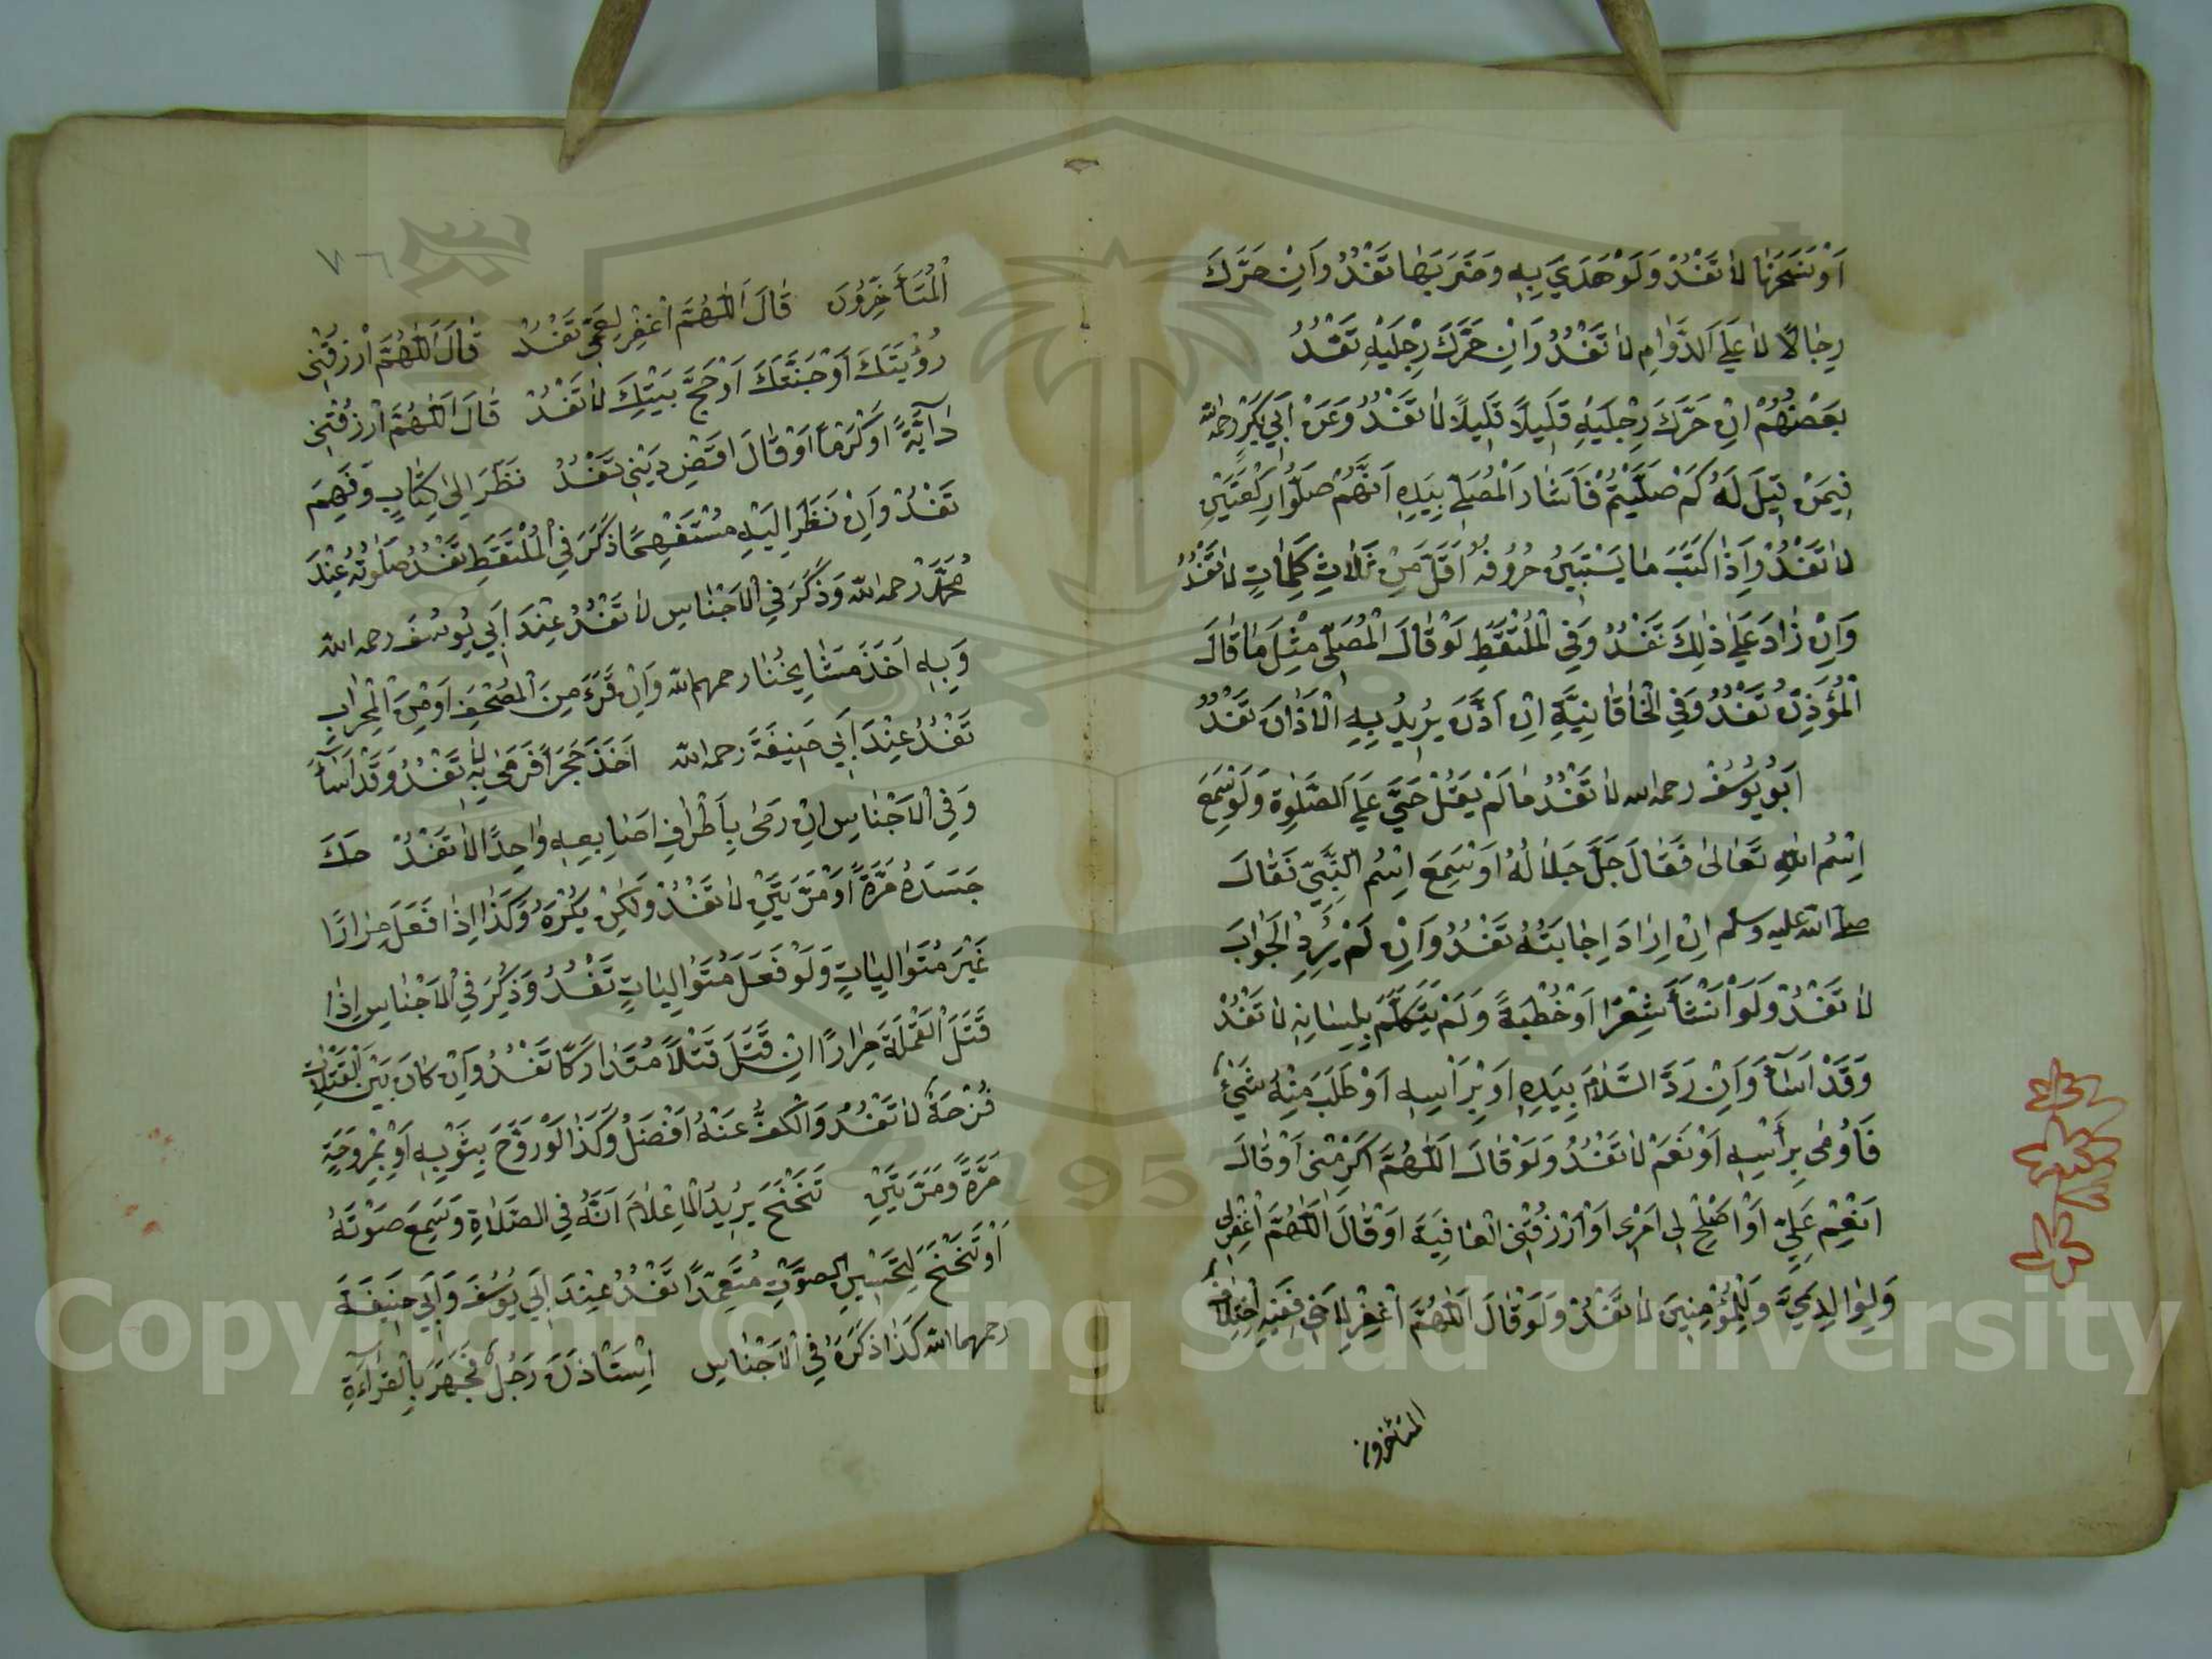 اَوْ نَسَجَهَا لَا تَفْسُدُ وَلَوْ هَدَيَ بِهِ وَضَرَبَهَا تَفْسُدُ وَاِنْ حَرَّكَ
رِجْلًا لَا عَلَى الدَّوَامِ لَا تَفْسُدُ وَاِنْ حَرَّكَ رِجْلَيْهِ تَفْسُدُ
بَعْضُهُمْ اِنْ حَرَّكَ رِجْلَيْهِ قَلِيلًا قَلِيلًا لَا تَفْسُدُ وَعَنْ اَبِي بَكْرٍ رحمه الله
فِيمَنْ قِيلَ لَهُ كَمْ صَلَّيْتُمْ فَاَشَارَ الْمُصَلِّي بِيَدِهِ اَنَّهُمْ صَلَّوْا رَكْعَتَيْنِ
لَا تَفْسُدُ وَاِذَا كَتَبَ مَا يَسْتَبِينُ حُرُوفُهُ اَقَلَّ مِنْ ثَلَاثِ كَلِمَاتٍ لَا تَفْسُدُ
وَاِنْ زَادَ عَلَى ذٰلِكَ تَفْسُدُ وَفِي الْمُلْتَقَطِ لَوْ قَالَ الْمُصَلِّي مِثْلَ مَا قَالَ
الْمُؤَذِّنُ تَفْسُدُ وَفِي الْخَاقَانِيَّةِ اِنْ اَذَّنَ يُرِيدُ بِهِ الْاَذَانَ تَفْسُدُ
اَبُو يُوسُفَ رحمه الله لَا تَفْسُدُ مَا لَمْ يَقُلْ حَيَّ عَلَى الصَّلٰوةِ وَلَوْ سَمِعَ
اِسْمَ اللهِ تَعَالٰى فَقَالَ جَلَّ جَلَالُهُ اَوْ سَمِعَ اِسْمَ النَّبِيِّ فَقَالَ
صلى الله عليه وسلم اِنْ اَرَادَ اِجَابَتَهُ تَفْسُدُ وَاِنْ لَمْ يُرِدِ الْجَوَابَ
لَا تَفْسُدُ وَلَوْ اَنْشَأَ شِعْرًا اَوْ خُطْبَةً وَلَمْ يَتَكَلَّمْ بِلِسَانِهِ لَا تَفْسُدُ
وَقَدْ اَسَاءَ وَاِنْ رَدَّ السَّلَامَ بِيَدِهِ اَوْ بِرَأْسِهِ اَوْ طَلَبَ مِنْهُ شَيْءٌ
فَاَوْمٰى بِرَأْسِهِ اَوْ نَعَمْ لَا تَفْسُدُ وَلَوْ قَالَ اَللّٰهُمَّ اَكْرِمْنِي اَوْ قَالَ
اَنْعِمْ عَلَيَّ اَوْ اَصْلِحْ لِي اَمْرِي اَوْ ارْزُقْنِي الْعَافِيَةَ اَوْ قَالَ اَللّٰهُمَّ اغْفِرْ لِي
وَلِوَالِدَيَّ وَلِلْمُؤْمِنِينَ لَا تَفْسُدُ وَلَوْ قَالَ اَللّٰهُمَّ اغْفِرْ لِاَخِي فَفِيهِ اخْتِلَافٌ
المتأخرون
٧٦
الْمُتَأَخِّرُونَ قَالَ اَللّٰهُمَّ اغْفِرْ لِعَمِّي تَفْسُدُ قَالَ اَللّٰهُمَّ ارْزُقْنِي
رُؤْيَتَكَ اَوْ جَنَّتَكَ اَوْ حَجَّ بَيْتِكَ لَا تَفْسُدُ قَالَ اَللّٰهُمَّ ارْزُقْنِي
دَابَّةً اَوْ كَرْمًا اَوْ قَالَ اقْضِ دَيْنِي تَفْسُدُ نَظَرَ اِلٰى كِتَابٍ وَفَهِمَ
تَفْسُدُ وَاِنْ نَظَرَ اِلَيْهِ مُسْتَفْهِمًا ذَكَرَ فِي الْمُلْتَقَطِ تَفْسُدُ صَلٰوتُهُ عِنْدَ
مُحَمَّدٍ رحمه الله وَذَكَرَ فِي الْاَجْنَاسِ لَا تَفْسُدُ عِنْدَ اَبِي يُوسُفَ رحمه الله
وَبِهِ اَخَذَ مَشَايِخُنَا رحمهم الله وَاِنْ قَرَءَ مِنَ الْمُصْحَفِ اَوْ مِنَ الْمِحْرَابِ
تَفْسُدُ عِنْدَ اَبِي حَنِيفَةَ رحمه الله اَخَذَ حَجَرًا فَرَمٰى بِهِ لَا تَفْسُدُ وَقَدْ اَسَاءَ
وَفِي الْاَجْنَاسِ اِنْ رَمٰى بِاَطْرَافِ اَصَابِعِهِ وَاحِدًا لَا تَفْسُدُ حَكَّ
جَسَدَهُ مَرَّةً اَوْ مَرَّتَيْنِ لَا تَفْسُدُ وَلٰكِنْ يُكْرَهُ وَكَذَا اِذَا فَعَلَ مِرَارًا
غَيْرَ مُتَوَالِيَاتٍ وَلَوْ فَعَلَ مُتَوَالِيَاتٍ تَفْسُدُ وَذُكِرَ فِي الْاَجْنَاسِ اِذَا
قَتَلَ الْقَمْلَةَ مِرَارًا اِنْ قَتَلَ قَتْلًا مُتَدَارِكًا تَفْسُدُ وَاِنْ كَانَ بَيْنَ الْقَتَلَاتِ
فُرْجَةٌ لَا تَفْسُدُ وَالْكَفُّ عَنْهُ اَفْضَلُ وَكَذَا لَوْ رَوَّحَ بِثَوْبِهِ اَوْ بِمِرْوَحَةٍ
مَرَّةً وَمَرَّتَيْنِ تَنَحْنَحَ يُرِيدُ الْاِعْلَامَ اَنَّهُ فِي الصَّلَاةِ وَسَمِعَ صَوْتَهُ
اَوْ تَنَحْنَحَ لِتَحْسِينِ الصَّوْتِ مُتَعَمِّدًا تَفْسُدُ عِنْدَ اَبِي يُوسُفَ وَاَبِي حَنِيفَةَ
رحمهما الله كَذَا ذَكَرَهُ فِي الْاَجْنَاسِ اِسْتَأْذَنَ رَجُلٌ فَجَهَرَ بِالْقِرَاءَةِ
Copyright © King Saud University
1957